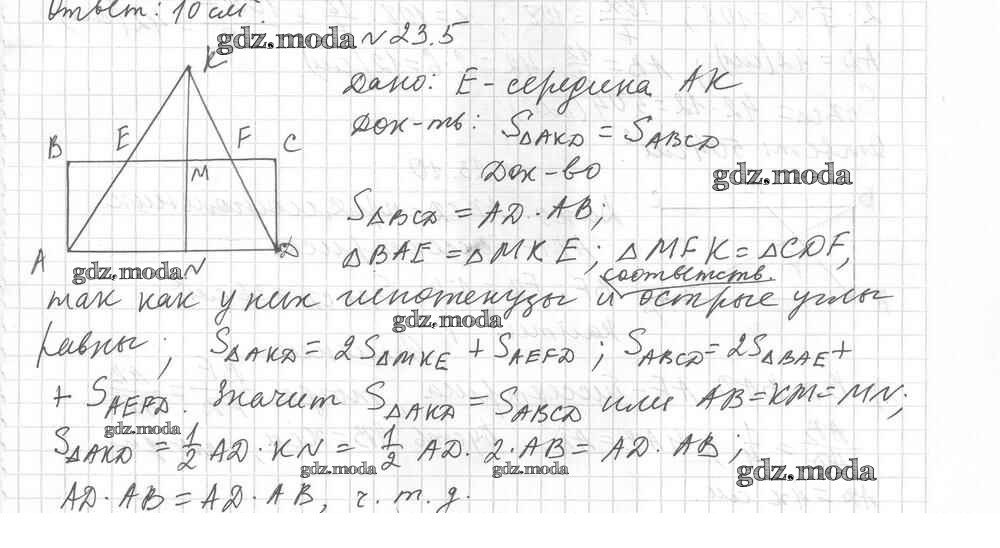 Ответ: 10 см².
gdz.moda № 23.5
K
Дано: E - середина AK
Док-ть: S△AKD = SABCD
B E F C
M
Док-во
gdz.moda
S△BCD = AD · AB;
A N D
△BAE = △MKE; △MFK = △CDF,
gdz.moda
соответств.
так как у них гипотенузы и острые углы
gdz.moda
равны; S△AKD = 2S△MKE + SAEFD; SABCD = 2S△BAE +
+ SAEFD. Значит S△AKD = SABCD или AB = KM = MN;
gdz.moda
S△AKD = 1/2 AD · KN = 1/2 AD · 2 · AB = AD · AB;
gdz.moda gdz.moda gdz.moda
AD · AB = AD · AB, ч. т. д.